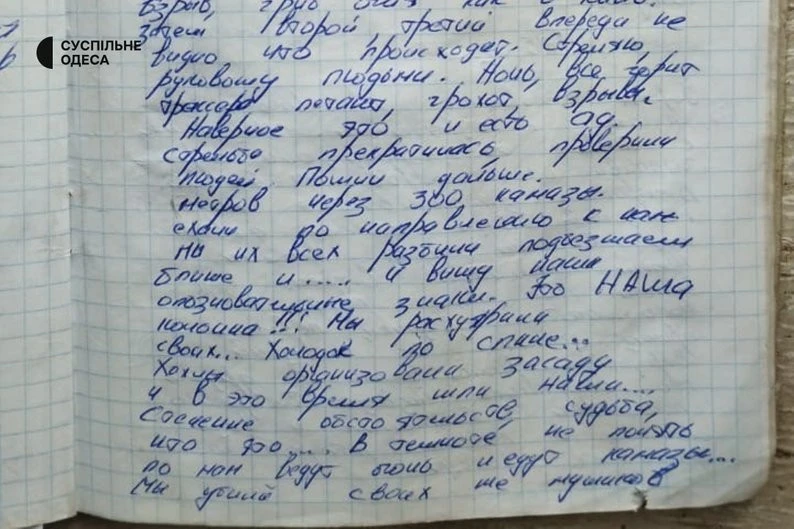 СУСПІЛЬНЕ
ОДЕСА
взрыв, как
затем второй третий впереди не
видно что происходит. Стреляю,
руковожу людьми. Ночь, все горит
трассера летают, грохот, взрывы.
Наверное это и есть ад.
стрельба прекратилась, проверили
людей. Пошли дальше.
метров через 300 камазы.
ехали по направлению к нам
мы их всех разбили подъезжаем
ближе и.... я вижу наши
опозновательные знаки. Это НАША
колонна!!! Мы расхуярили
своих... Холодок по спине...
Хохлы организовали засаду
и в это время шли наши....
Стечение обстоятельств, судьба,
что это.... в темноте не понять
по нам ведут огонь и едут камазы...
Мы убили своих же мужиков